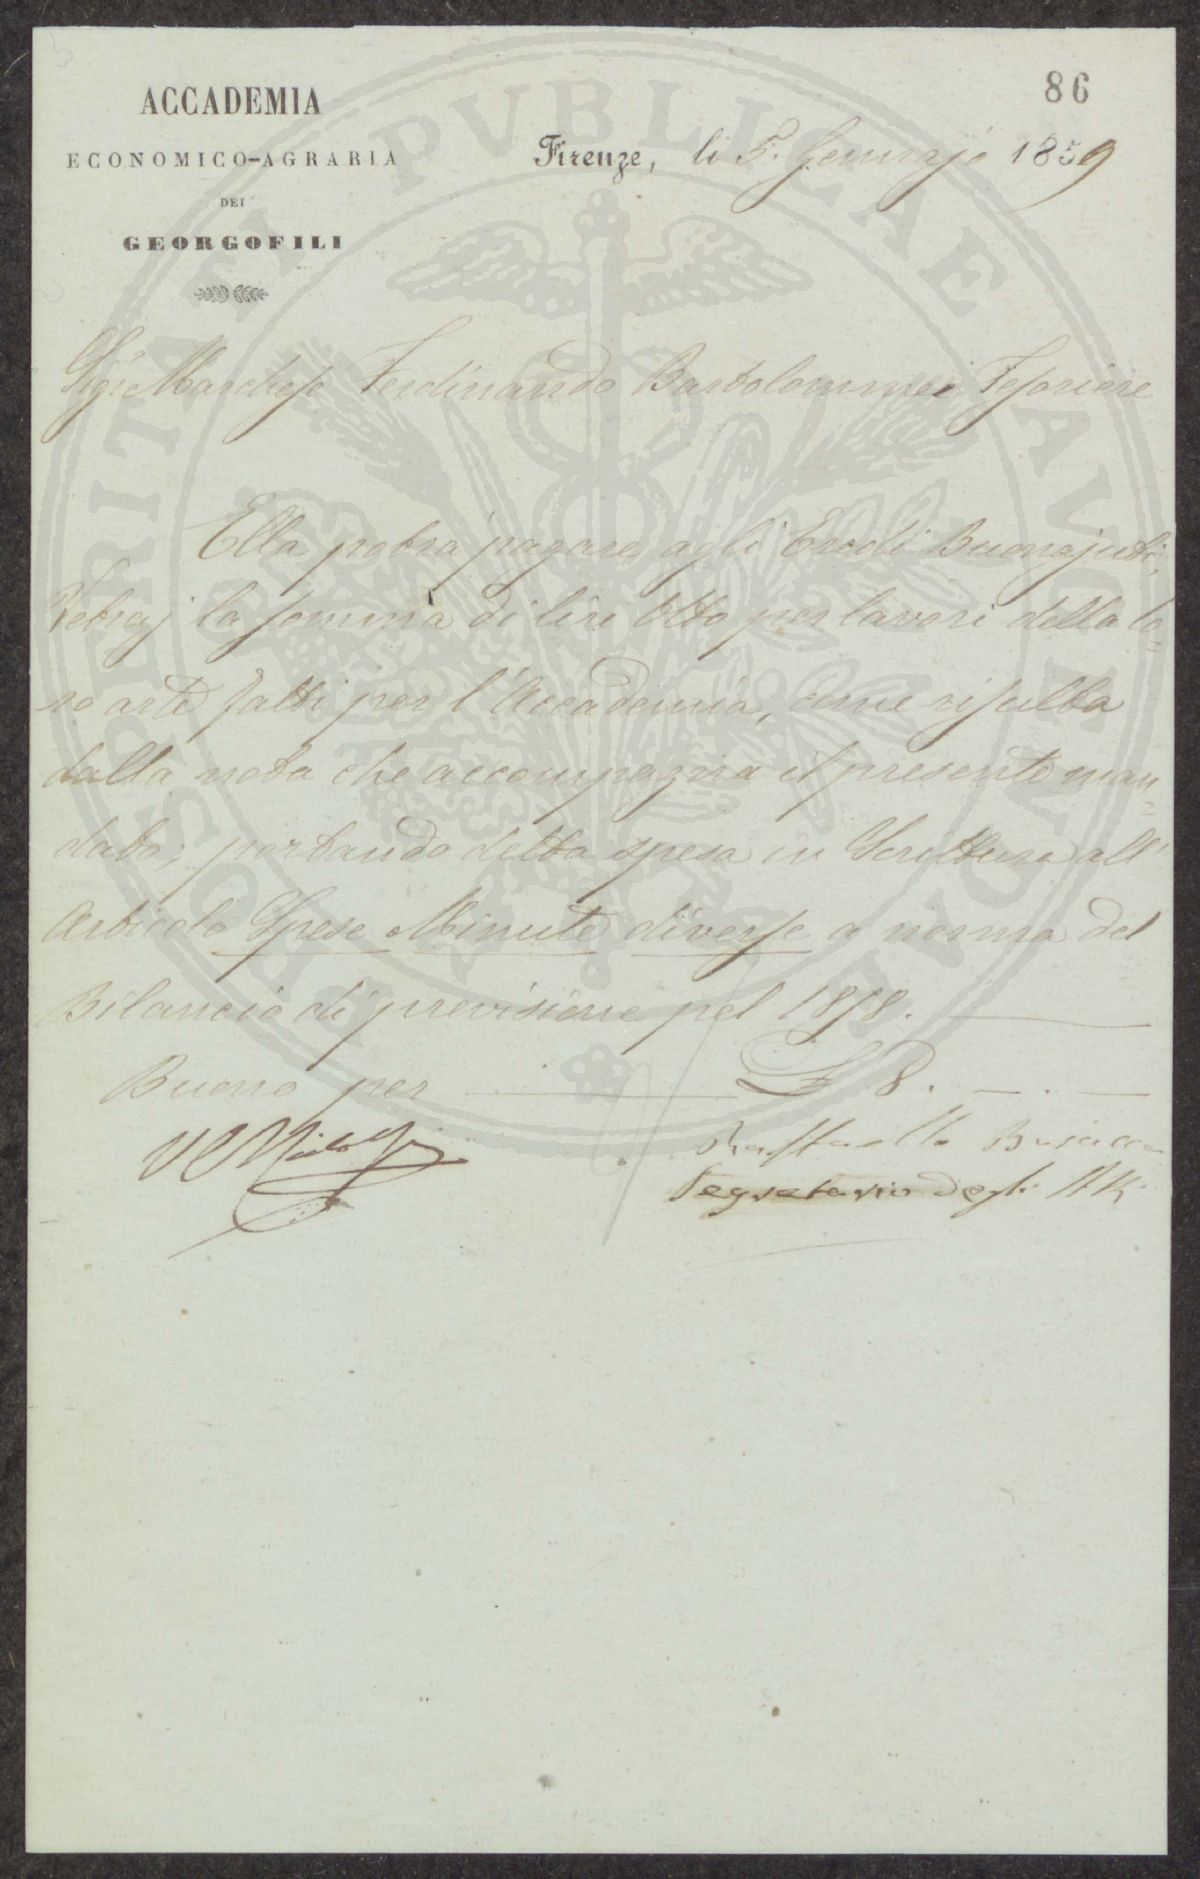 86
ACCADEMIA
ECONOMICO-AGRARIA
DEI
GEORGOFILI
Firenze, li 5. Gennajo 1859
Sigr Marchese Ferdinando Bartolommei Tesoriere
Ella potrà pagare agli Eredi Buonajuti,
Vetraj la somma di lire Otto per lavori della lo=
ro arte fatti per l'Accademia, come risulta
dalla nota che accompagna il presente man=
dato; portando detta spesa in Scrittura all'
Articolo Spese Minute diverse a norma del
Bilancio di previsione pel 1858.
Buono per £ 8. — . —
Raffaello Busacca
Segretario degli Atti
PROSPERITATI PVBLICAE AVGENDAE